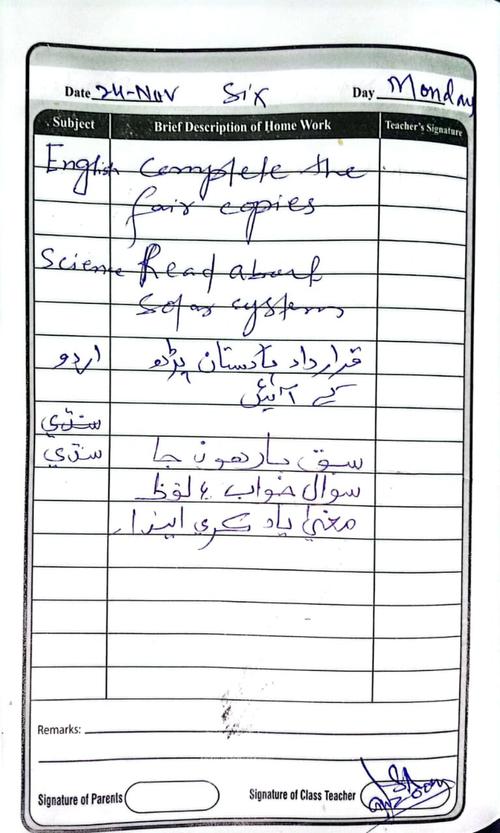 Date 24-Nov Six Day Monday
Subject Brief Description of Home Work Teacher's Signature
English Complete the
fair copies
Science Read about
Solar system
اردو قرارداد پاکستان پڑھ
کے آئیں
سنڌي
سنڌي سبق ٻارهون جا
سوال جواب ۽ لفظ
معنيٰ ياد ڪري ايندا.
Remarks:
Signature of Parents Signature of Class Teacher